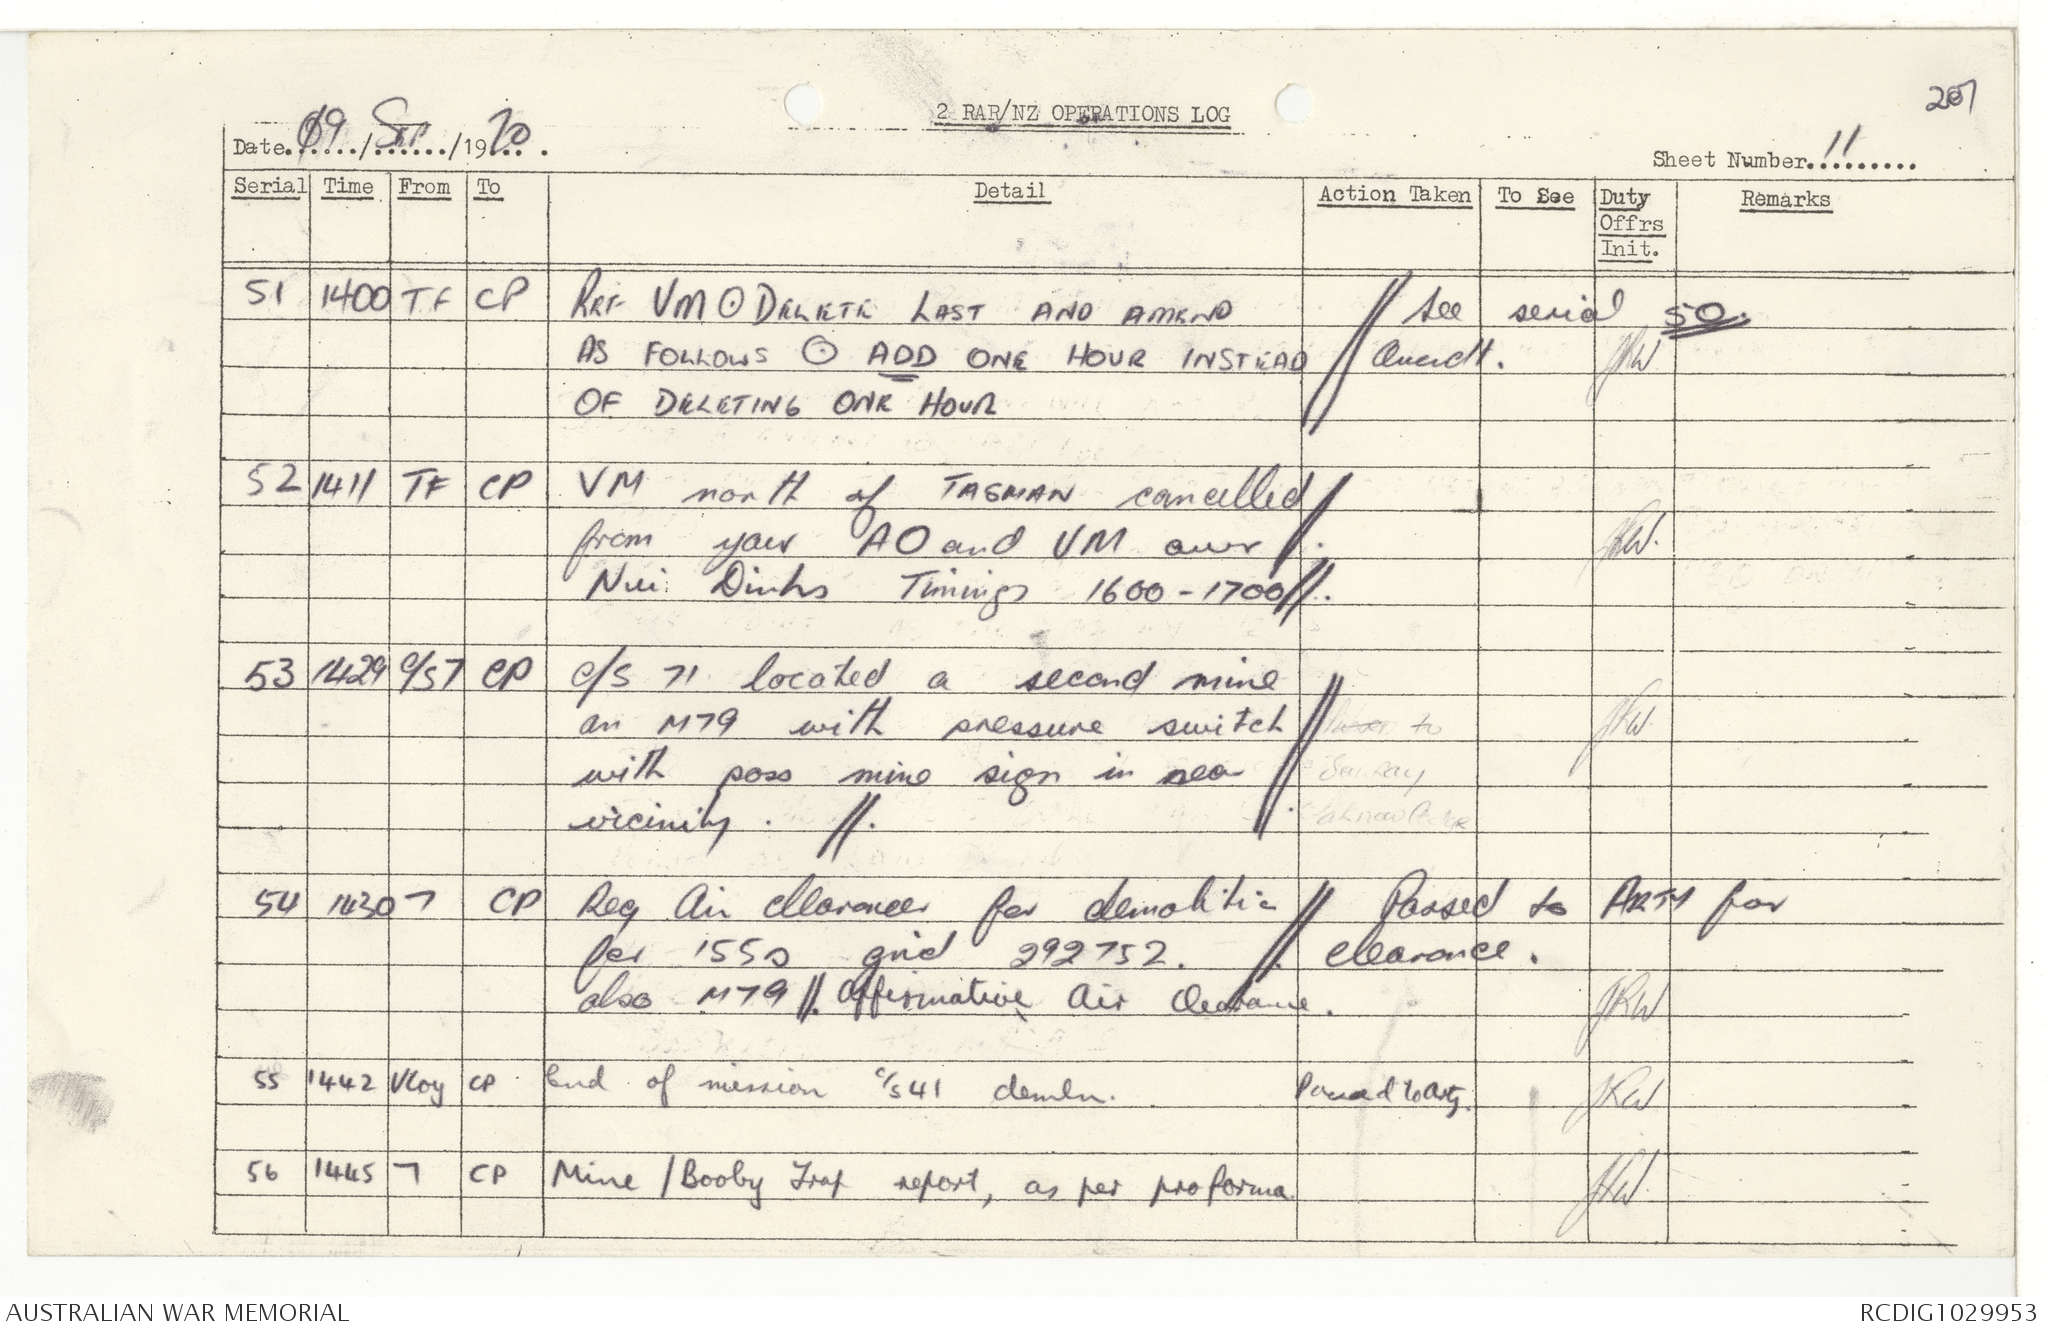 207
2 RAR/NZ OPERATIONS LOG
Date 09/Sep/1970.
Sheet Number 11
Serial Time From To Detail Action Taken To See Duty Offrs Init. Remarks
51 1400 TF CP REF VM ⊙ DELETE LAST AND AMEND // See serial 50.
AS FOLLOWS ⊙ ADD ONE HOUR INSTEAD JRW
OF DELETING ONE HOUR
52 1411 TF CP VM north of TASMAN cancelled
from your AO and VM over JRW.
Nui Dinhs Timings 1600-1700//.
53 1429 C/S7 CP C/S 71 located a second mine
an M79 with pressure switch // to JRW
with poss mine sign in near
vicinity. //.
54 1430 7 CP Req Air clearances for demolitio // Passed to ARTY for
for 155s grid 292752. // clearance.
also M79 //. Affirmative Air Clearance. JRW
55 1442 CP End of mission C/S41 demln. Passed to arty. JRW
56 1445 7 CP Mine/Booby Trap report, as per proforma. JRW
AUSTRALIAN WAR MEMORIAL
RCDIG1029953